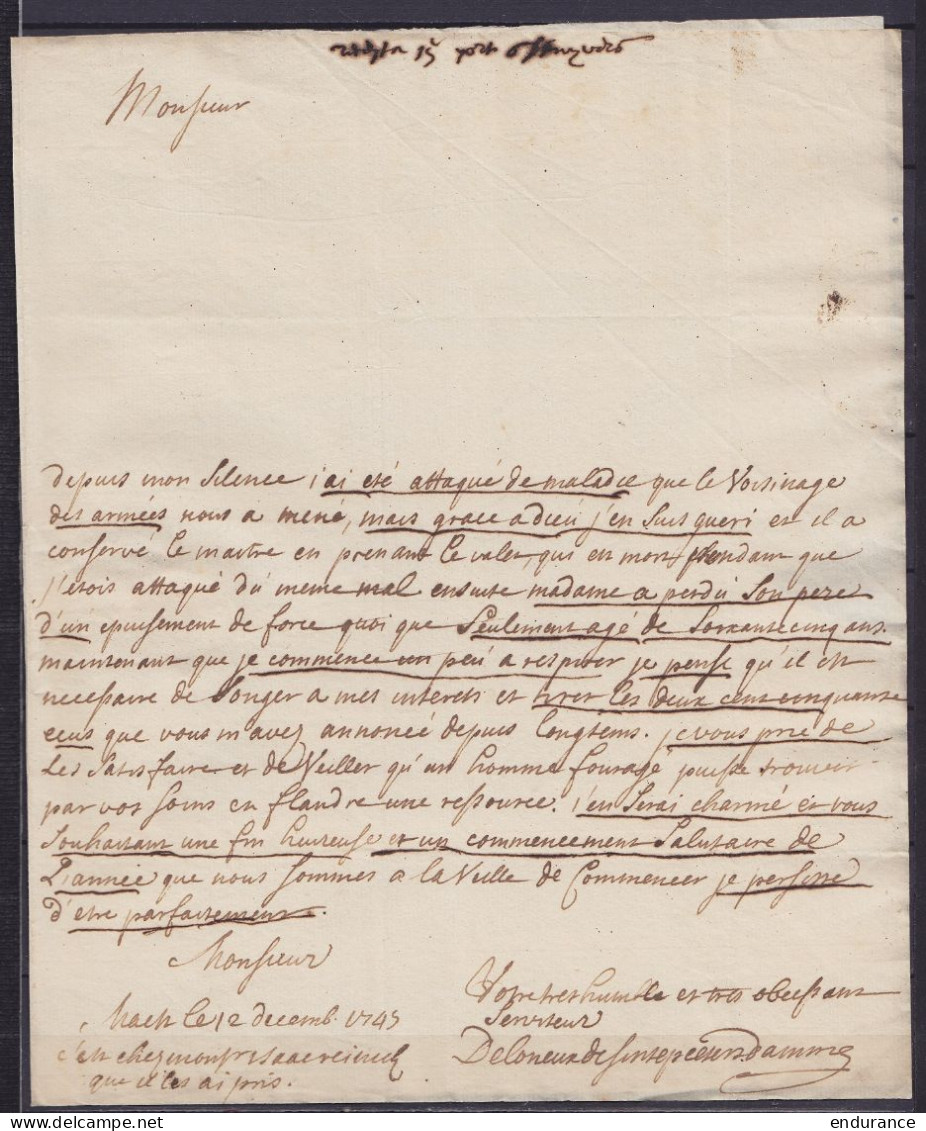 Monsieur
depuis mon Silence j'ai eté attaqué de maladie que le Voisinage
des armées nous a mené, mais grace a dieu j'en suis gueri et il a
conservé le maitre en prenant le valet, qui en mort pendant que
j'etois attaqué du meme mal ensuite madame a perdu Son pere
d'un epuisement de force quoi que Seulement agé de Soixante cinq ans.
maintenant que je commence un peu a respirer je pense qu'il est
necessaire de Songer a mes interets et tirer les deux cent cinquante
ecus que vous m'avez annoncé depuis longtems. je vous prie de
les Satisfaire et de Veiller qu'un homme fouragé puisse trouver
par vos soins en flandre une ressource. j'en Serai charmé et vous
Souhaitant une fin heureuse et un commencement Salutaire de
L'année que nous sommes a la Veille de Commencer je persiste
d'etre parfaitement.
Monsieur
Votre tres humble et tres obeissant
Serviteur
le 12 decemb. 1747
c'est chez
que je les ai pris.
endurance